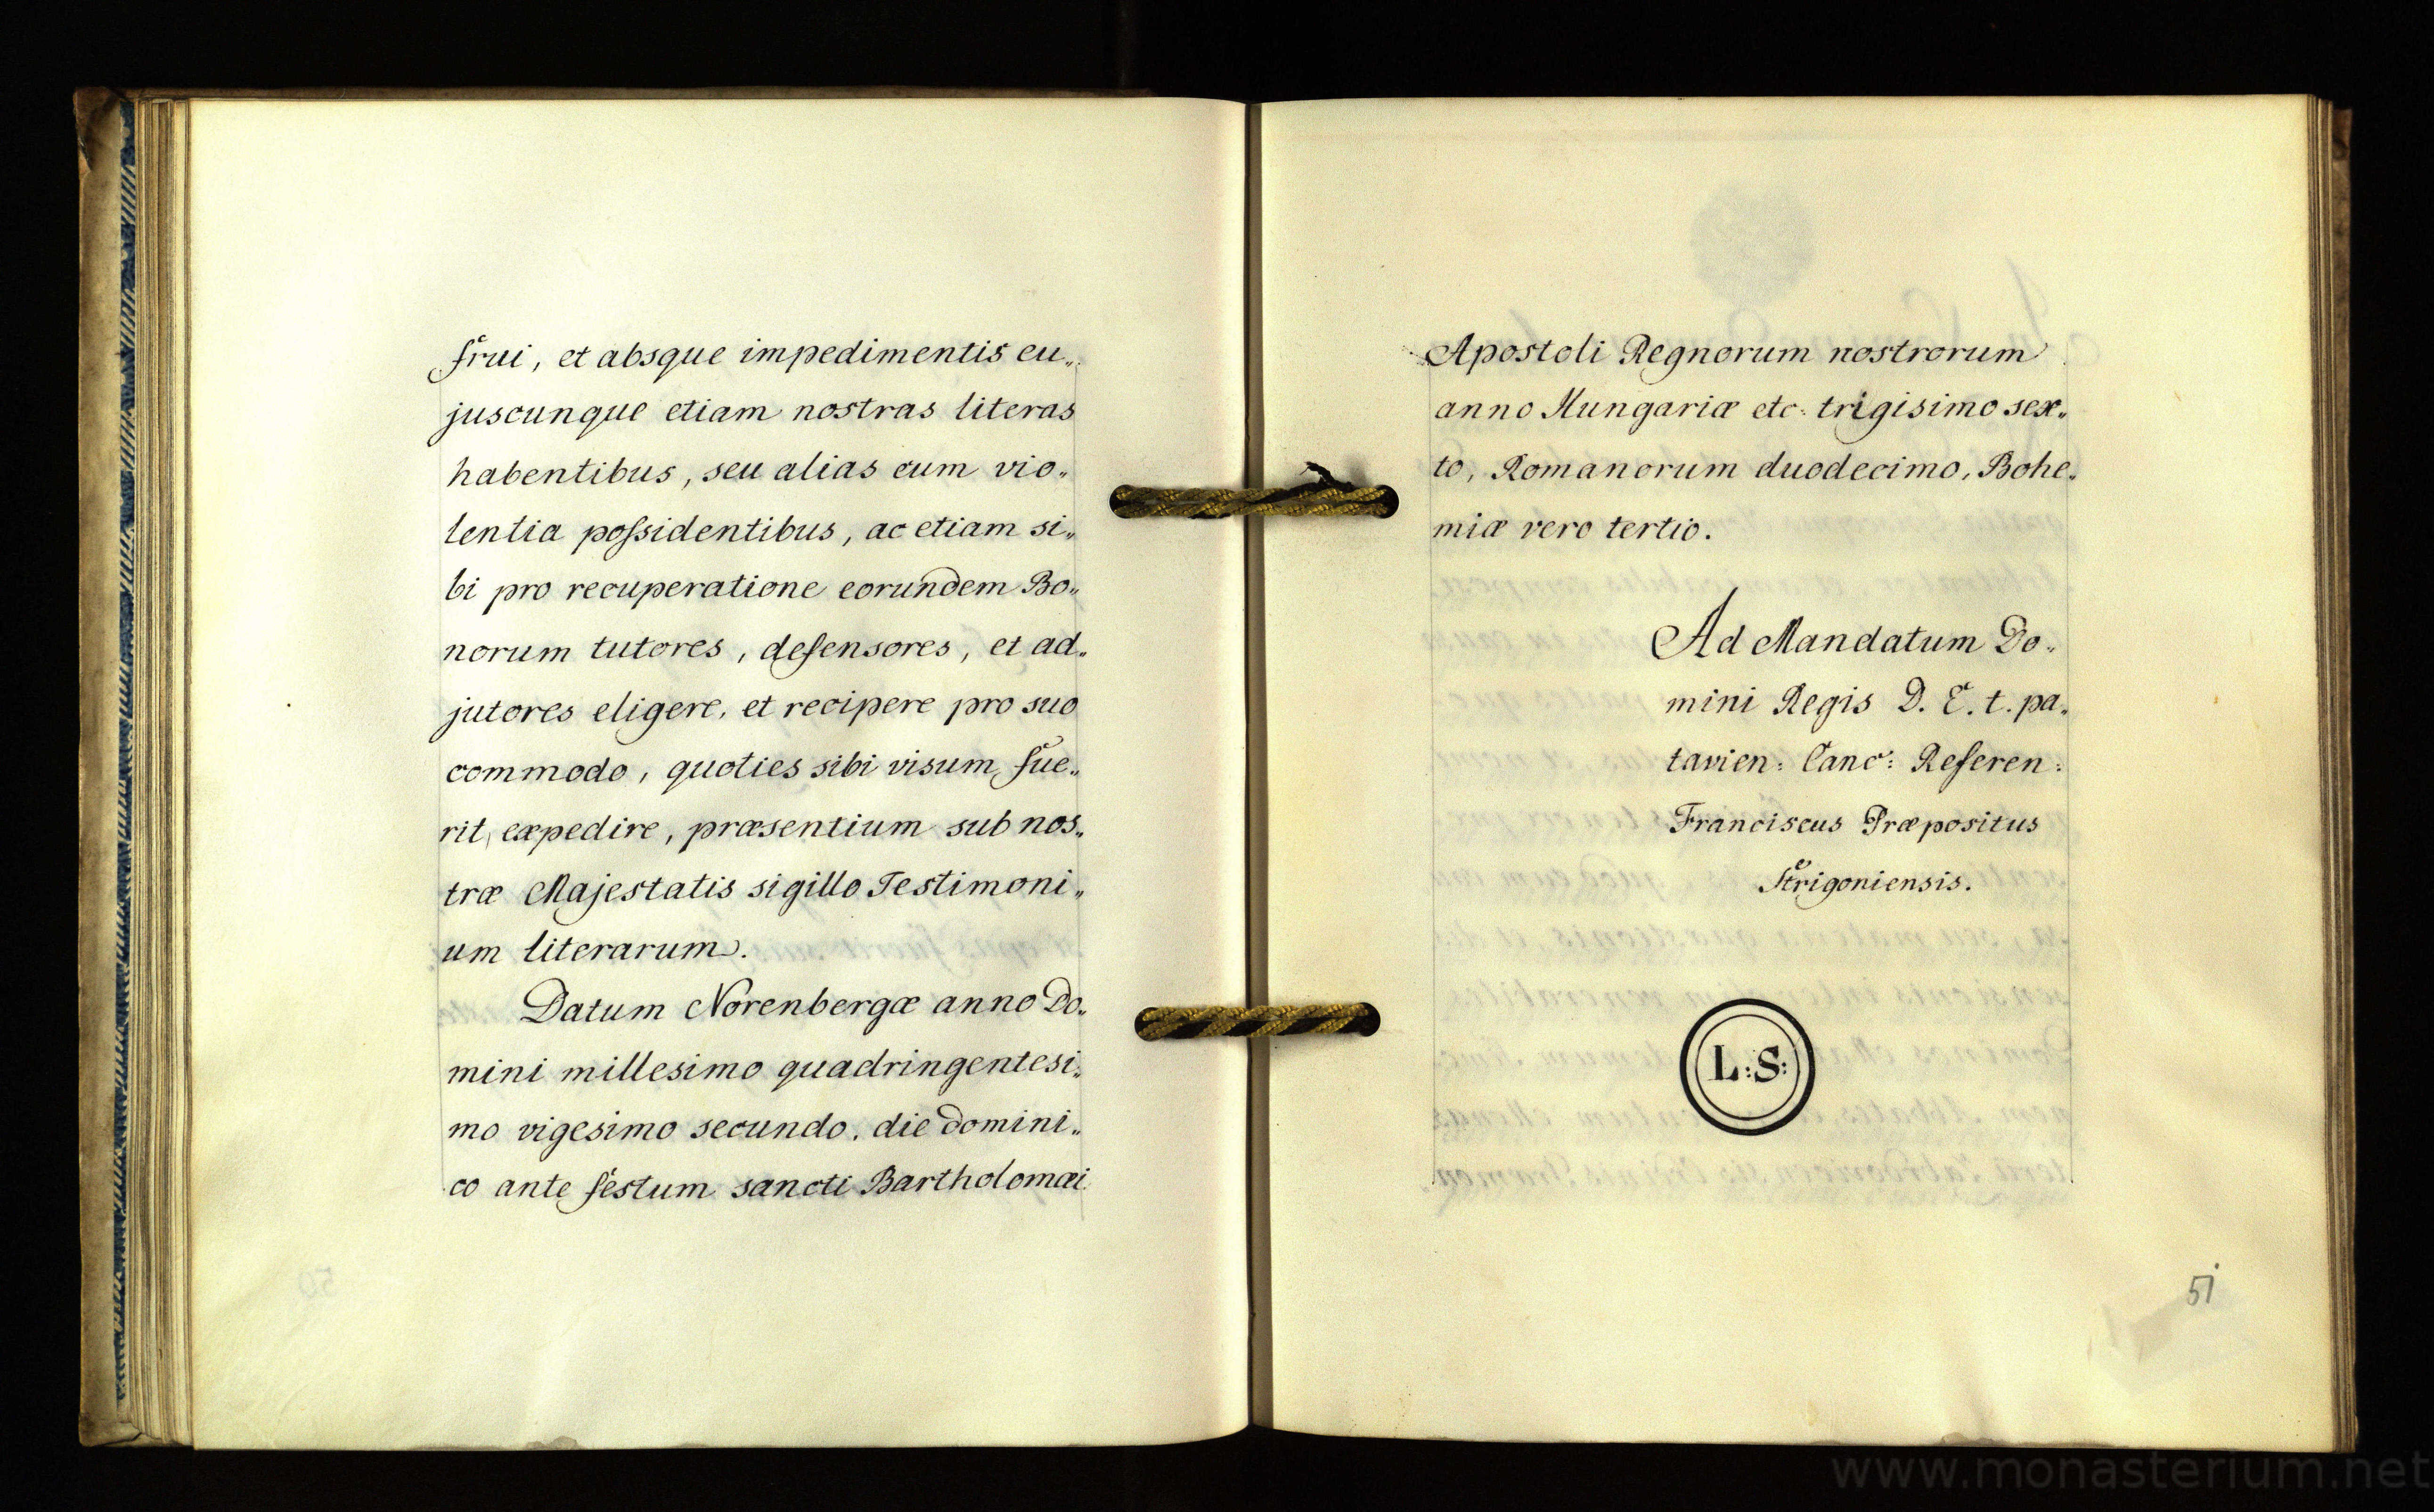 frui, et absque impedimentis eu„
juscunque etiam nostras literas
habentibus, seu alias cum vio„
lentia poſsidentibus, ac etiam si„
bi pro recuperatione eorundem Bo„
norum tutores, defensores, et ad„
jutores eligere, et recipere pro suo
commodo, quoties sibi visum fue„
rit, expedire, præsentium sub nos„
træ Majestatis sigillo Testimoni„
um literarum.
Datum Norenbergæ anno Do„
mini millesimo quadringentesi„
mo vigesimo secundo, die domini„
co ante festum sancti Bartholomæi
Apostoli Regnorum nostrorum
anno Hungariæ etc: trigisimo sex„
to, Romanorum duodecimo, Bohe„
miæ vero tertio.
Ad Mandatum Do„
mini Regis D. E. t. pa„
tavien: Canc: Referen:
Franciscus Præpositus
Strigoniensis.
L:S:
51
www.monasterium.net